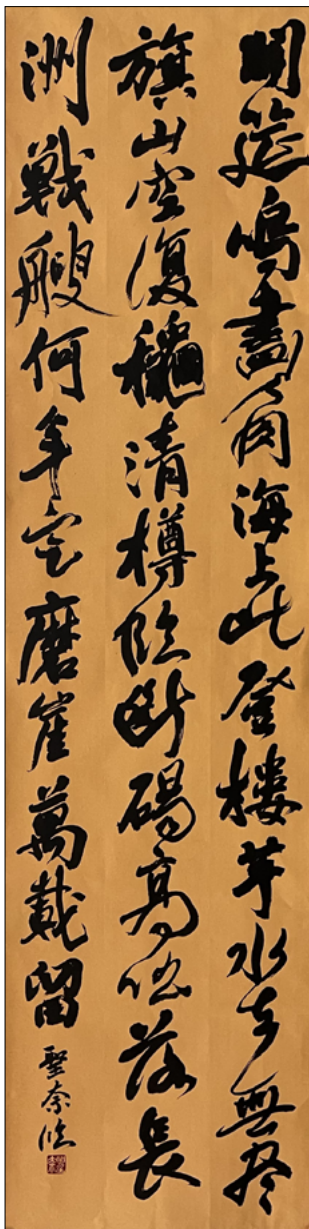 開筵鳴畫角海上此登樓芋水去無盡
旗山空復穐清樽臨斷碣高落長
洲戰艘何年定磨崖萬載留 聖奈